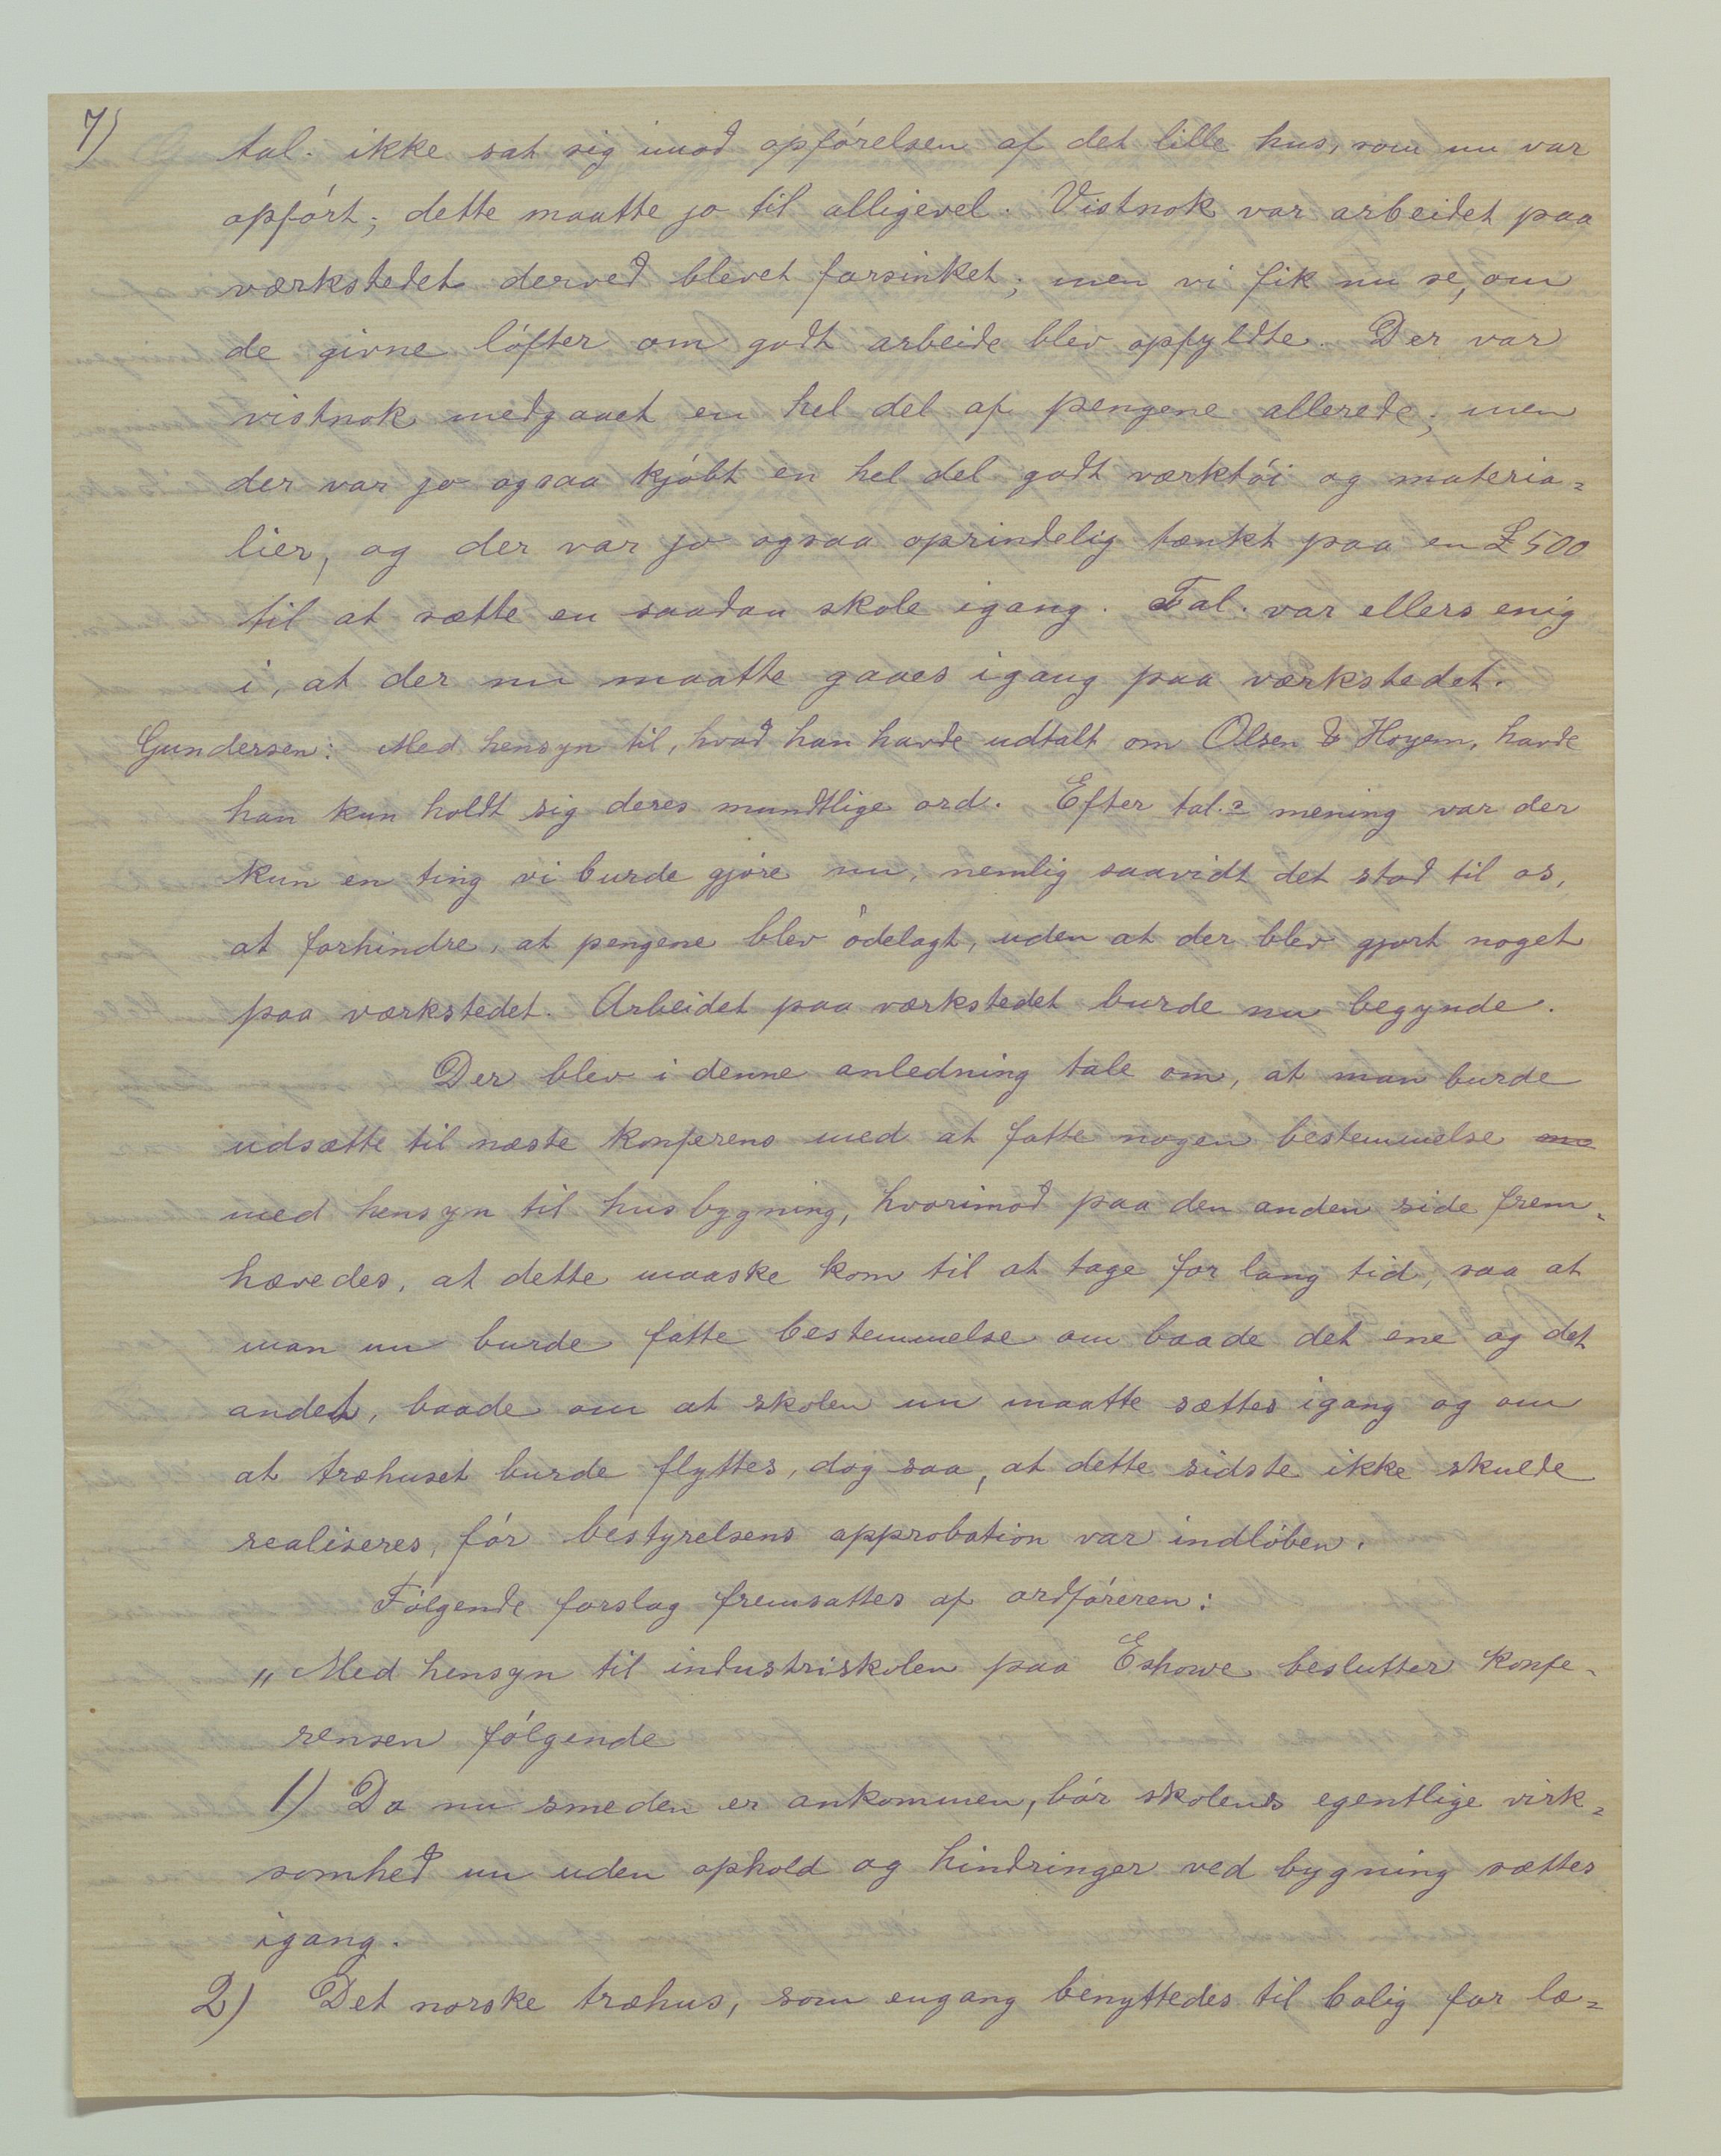 7)
tal. ikke sat sig imod opførelsen af det lille hus, som nu var
opført; dette maatte jo til alligevel. Vistnok var arbeidet paa
værkstedet derved blevet forsinket; men vi fik nu se, om
de givne løfter om godt arbeide blev opfyldte. Der var
vistnok medgaaet en hel del af pengene allerede; men
der var jo ogsaa kjøbt en hel del godt værktøi og materia=
lier, og der var jo ogsaa oprindelig tænkt paa en £500
til at sætte en saadan skole igang. Tal. var ellers enig
i, at der nu maatte gaaes igang paa værkstedet.
Gundersen: Med hensyn til, hvad han havde udtalt om Olsen & Hoyem, havde
han kun holdt sig deres mundtlige ord. Efter tal.s mening var der
kun en ting vi burde gjøre nu, nemlig saavidt det stod til os,
at forhindre, at pengene blev ødelagt, uden at der blev gjort noget
paa værkstedet. Arbeidet paa værkstedet burde nu begynde.
Der blev i denne anledning tale om, at man burde
udsætte til næste konferens med at fatte nogen bestemmelse
med hensyn til husbygning, hvorimod paa den anden side frem=
hævedes, at dette maaske kom til at tage for lang tid, saa at
man nu burde fatte bestemmelse om baade det ene og det
andet, baade om at skolen nu maatte sættes igang og om
at træhuset burde flyttes, dog saa, at dette sidste ikke skulde
realiseres, før bestyrelsens approbation var indløben.
Følgende forslag fremsattes af ordføreren:
„Med hensyn til industriskolen paa Eshowe beslutter konfe=
rensen følgende
1) Da nu smeden er ankommen, bør skolens egentlige virk=
somhed nu uden ophold og hindringer ved bygning sættes
igang.
2) Det norske træhus, som engang benyttedes til bolig for læ=